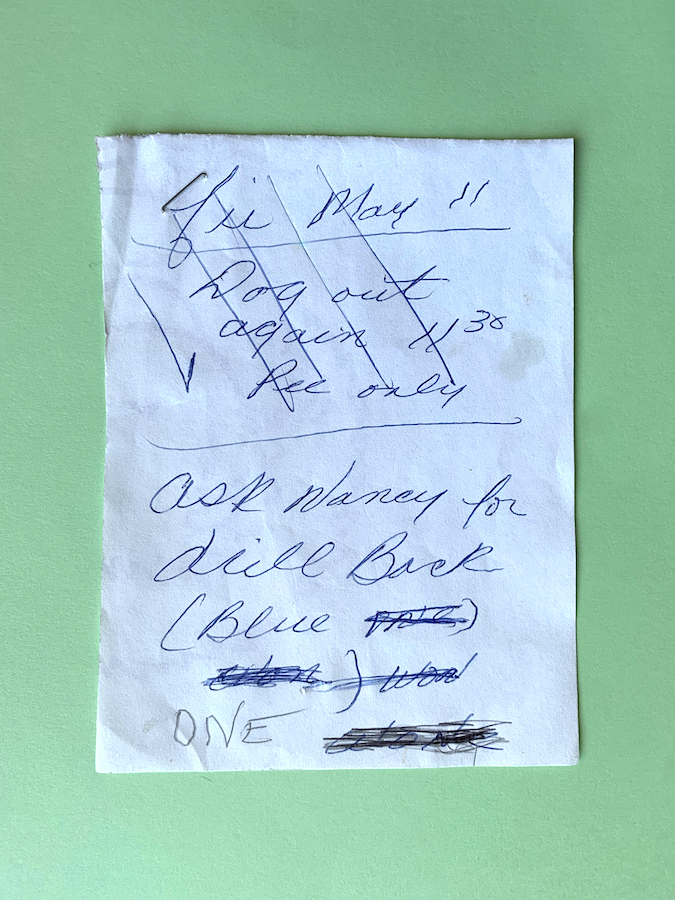 Fri May 11
Dog out
again 11 30
Pee only
Ask Nancy for
drill Back
(Blue one)
) won
ONE